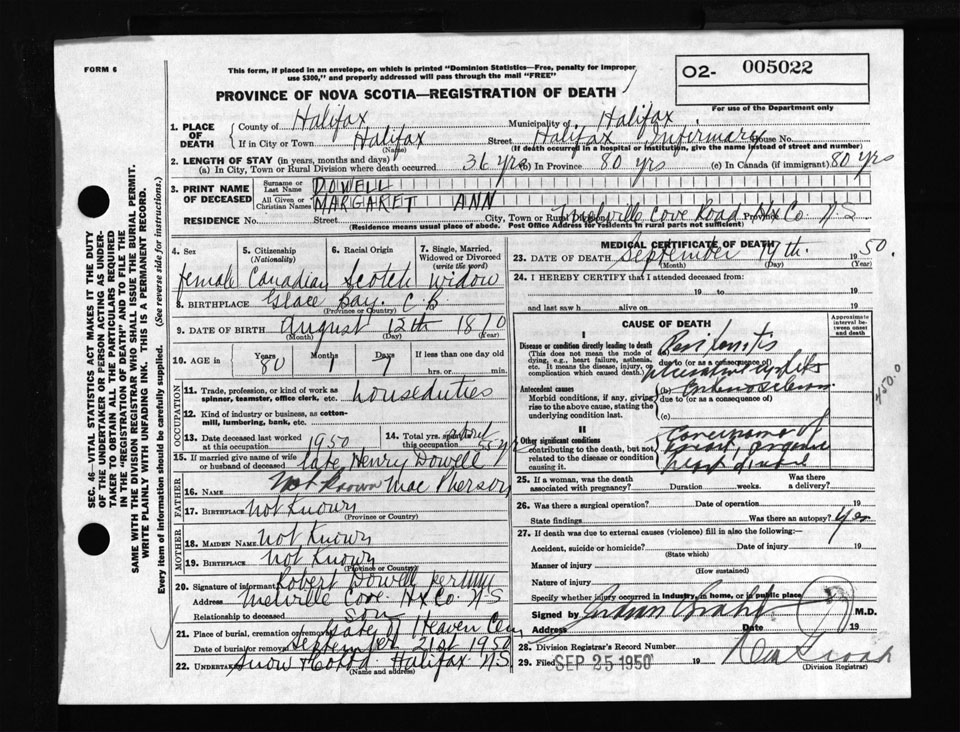 FORM 6
This form, if placed in an envelope, on which is printed "Dominion Statistics—Free, penalty for improper
use $300," and properly addressed will pass through the mail "FREE"
PROVINCE OF NOVA SCOTIA—REGISTRATION OF DEATH
O2- 005022
For use of the Department only
SEC. 46—VITAL STATISTICS ACT MAKES IT THE DUTY
OF THE UNDERTAKER OR PERSON ACTING AS UNDER-
TAKER TO OBTAIN ALL THE PARTICULARS REQUIRED
IN THE "REGISTRATION OF DEATH" AND TO FILE THE
SAME WITH THE DIVISION REGISTRAR WHO SHALL ISSUE THE BURIAL PERMIT.
WRITE PLAINLY WITH UNFADING INK. THIS IS A PERMANENT RECORD.
Every item of information should be carefully supplied. (See reverse side for instructions.)
1. PLACE OF DEATH
County of Halifax Municipality of Halifax
If in City or Town Halifax Street Halifax Infirmary House No.
(Name) (If death occurred in a hospital or institution, give the name instead of street and number)
2. LENGTH OF STAY (in years, months and days)
(a) In City, Town or Rural Division where death occurred 36 yrs (b) in Province 80 yrs (c) In Canada (if immigrant) 80 yrs
3. PRINT NAME OF DECEASED
Surname or Last Name DOWELL
All Given or Christian Names MARGARET ANN
RESIDENCE No. Street City, Town or Rural Melville Cove Road Hx Co. Province N.S
Residence means usual place of abode. Post Office Address for residents in rural parts not sufficient)
4. Sex 5. Citizenship (Nationality) 6. Racial Origin 7. Single, Married, Widowed or Divorced (write the word)
female Canadian Scotch Widow
8. BIRTHPLACE Glace Bay. C.B
(Province or Country)
9. DATE OF BIRTH August 12th 1870
(Month) (Day) (Year)
10. AGE in Years Months Days If less than one day old
80 1 7 hrs. or min.
OCCUPATION
11. Trade, profession, or kind of work as
spinner, teamster, office clerk, etc. houseduties
12. Kind of industry or business, as cotton-
mill, lumbering, bank, etc.
13. Date deceased last worked at this occupation 1950 14. Total yrs. spent in this occupation about 55 yrs
15. If married give name of wife
or husband of deceased late Henry Dowell
FATHER
16. NAME Not Known Mac Pherson
17. BIRTHPLACE Not Known
(Province or Country)
MOTHER
18. MAIDEN NAME Not Known
19. BIRTHPLACE Not Known
(Province or Country)
20. Signature of informant Robert Dowell per
Address Melville Cove. Hx Co. N-S
Relationship to deceased Son
21. Place of burial, cremation or removal Gate of Heaven Cem
Date of burial or removal September 21st 1950
22. Undertaker Snow & Co Ltd Halifax N.S
(Name and address)
MEDICAL CERTIFICATE OF DEATH
23. DATE OF DEATH September 19th. 1950
(Month) (Day) (Year)
24. I HEREBY CERTIFY that I attended deceased from:
19 to 19
and last saw h alive on 19
CAUSE OF DEATH
Approximate interval between onset and death
Disease or condition directly leading to death
(This does not mean the mode of
dying, e.g., heart failure, asthenia,
etc. It means the disease, injury, or
complication which caused death.)
(a) Peritonitis
due to (or as a consequence of)
Antecedent causes
Morbid conditions, if any, giving
rise to the above cause, stating the
underlying condition last.
(b)
due to (or as a consequence of)
(c)
450.0
II
Other significant conditions
contributing to the death, but not
related to the disease or condition
causing it.
Carcinoma of
breast, organic
heart disease
25. If a woman, was the death associated with pregnancy? Duration weeks. Was there a delivery?
26. Was there a surgical operation? Date of operation 19
State findings Was there an autopsy? Yes
27. If death was due to external causes (violence) fill in also the following:—
Accident, suicide or homicide? Date of injury 19
(State which)
Manner of injury
(How sustained)
Nature of injury
Specify whether injury occurred in industry, in home, or in public place
Signed by M.D.
Address Date 19
28. Division Registrar's Record Number
29. Filed SEP 25 1950 19
(Division Registrar)